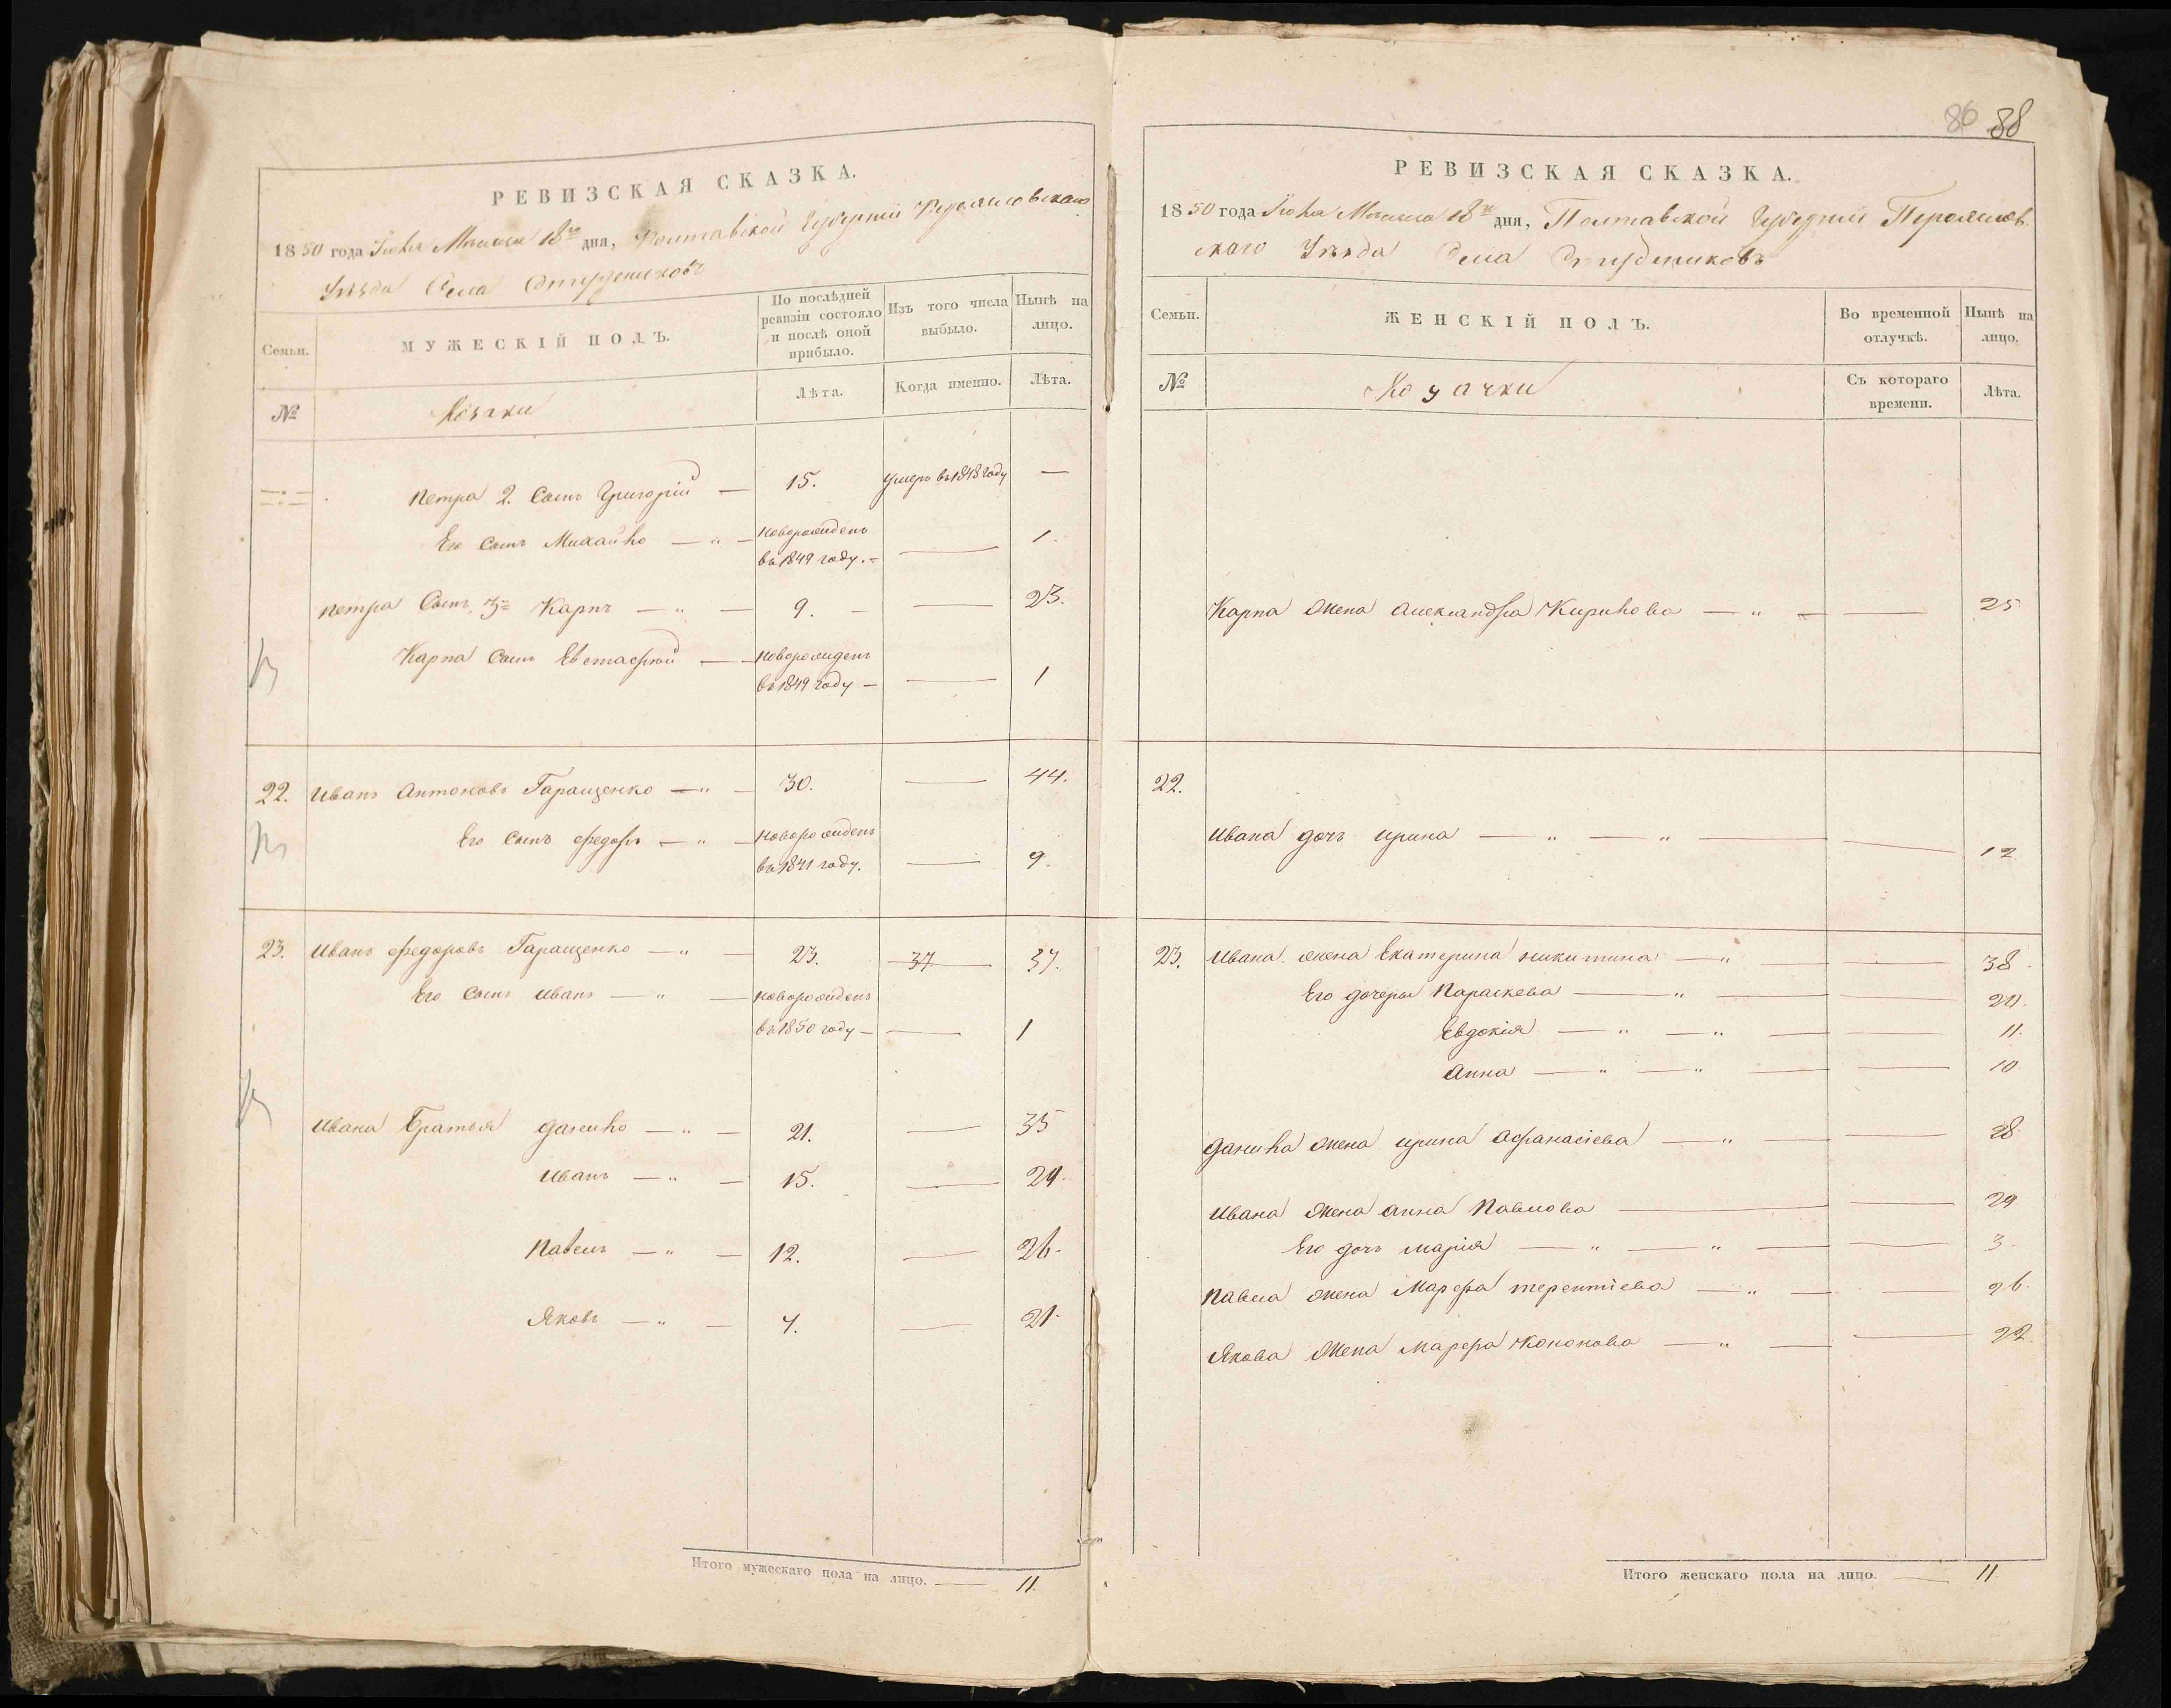 РЕВИЗСКАЯ СКАЗКА.
1850 года Іюня Месяца 18го дня, Полтавской Губерніи Переяславскаго
Уѣзда Села Студениковъ
Семьи.
МУЖЕСКІЙ ПОЛЪ.
По послѣдней ревизіи состояло и послѣ оной прибыло.
Изъ того числа выбыло.
Нынѣ на лицо.
№
Козаки
Лѣта.
Когда именно.
Лѣта.
Петра 2. Сынъ Григорій — 15. умеръ въ 1848 году —
Его сынъ Михайло — " — новорожденъ
въ 1849 году. — — 1.
Петра Сынъ 3й Карпъ — " — 9. — — 23.
Карпа сынъ Евстафій — новорожденъ
въ 1849 году — — 1
22. Иванъ Антоновъ Гаращенко — " — 30. — 44.
Его сынъ Федоръ — " — новорожденъ
въ 1841 году. — 9.
23. Иванъ Федоровъ Гаращенко — " — 23. 37. 37.
Его сынъ Иванъ — " — новорожденъ
въ 1850 году — — 1
Ивана Братья Данило — " — 21. — 35
Иванъ — " — 15. — 29.
Павелъ — " — 12. — 26.
Яковъ — " — 7. — 21.
Итого мужескаго пола на лицо. — 11.
86 88
РЕВИЗСКАЯ СКАЗКА.
1850 года Іюня Месяца 18го дня, Полтавской Губерніи Переяслав-
скаго Уѣзда Села Студениковъ
Семьи.
ЖЕНСКІЙ ПОЛЪ.
Во временной отлучкѣ.
Нынѣ на лицо.
№
Козачки
Съ котораго времени.
Лѣта.
Карпа жена Александра Кирилова — " — — 25
22.
Ивана дочь Ирина — " — " — — 12
23. Ивана жена Екатерина Никитина — " — 38.
Его дочери Параскева — " — — 20.
Евдокія — " — " — — 11.
Анна — " — " — — 10
Данила жена Ирина Афанасіева — " — — 28.
Ивана жена Анна Павлова — — 29
Его дочь Марія — " — " — — 3.
Павла жена Марфа Терентіева — " — — 26.
Якова жена Марфа Кононова — " — — 22.
Итого женскаго пола на лицо. — 11